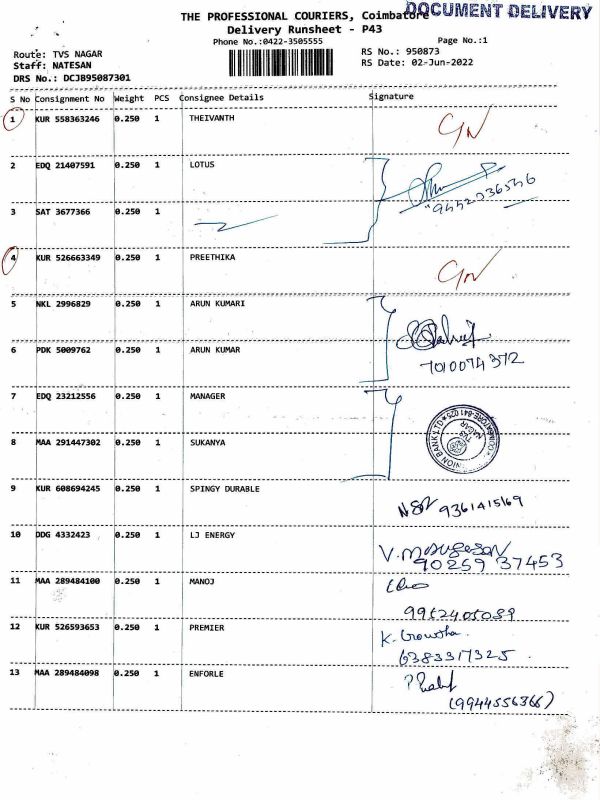 THE PROFESSIONAL COURIERS, Coimbatore
DOCUMENT DELIVERY
Delivery Runsheet - P43
Phone No.:0422-3505555
Page No.:1
Route: TVS NAGAR
RS No.: 950873
Staff: NATESAN
RS Date: 02-Jun-2022
DRS No.: DCJB95087301
S No Consignment No Weight PCS Consignee Details Signature
1 KUR 558363246 0.250 1 THEIVANTH
2 EDQ 21407591 0.250 1 LOTUS
3 SAT 3677366 0.250 1
4 KUR 526663349 0.250 1 PREETHIKA
5 NKL 2996829 0.250 1 ARUN KUMARI
6 PDK 5009762 0.250 1 ARUN KUMAR
7010074372
7 EDQ 23212556 0.250 1 MANAGER
8 MAA 291447302 0.250 1 SUKANYA
TVS NAGAR
9 KUR 608694245 0.250 1 SPINGY DURABLE
9361415169
10 DDG 4332423 0.250 1 LJ ENERGY
V. Murugesan
90259 37453
11 MAA 289484100 0.250 1 MANOJ
9952405039
12 KUR 526593653 0.250 1 PREMIER
K. Gowtha
6383317325
13 MAA 289484098 0.250 1 ENFORLE
(9944556366)